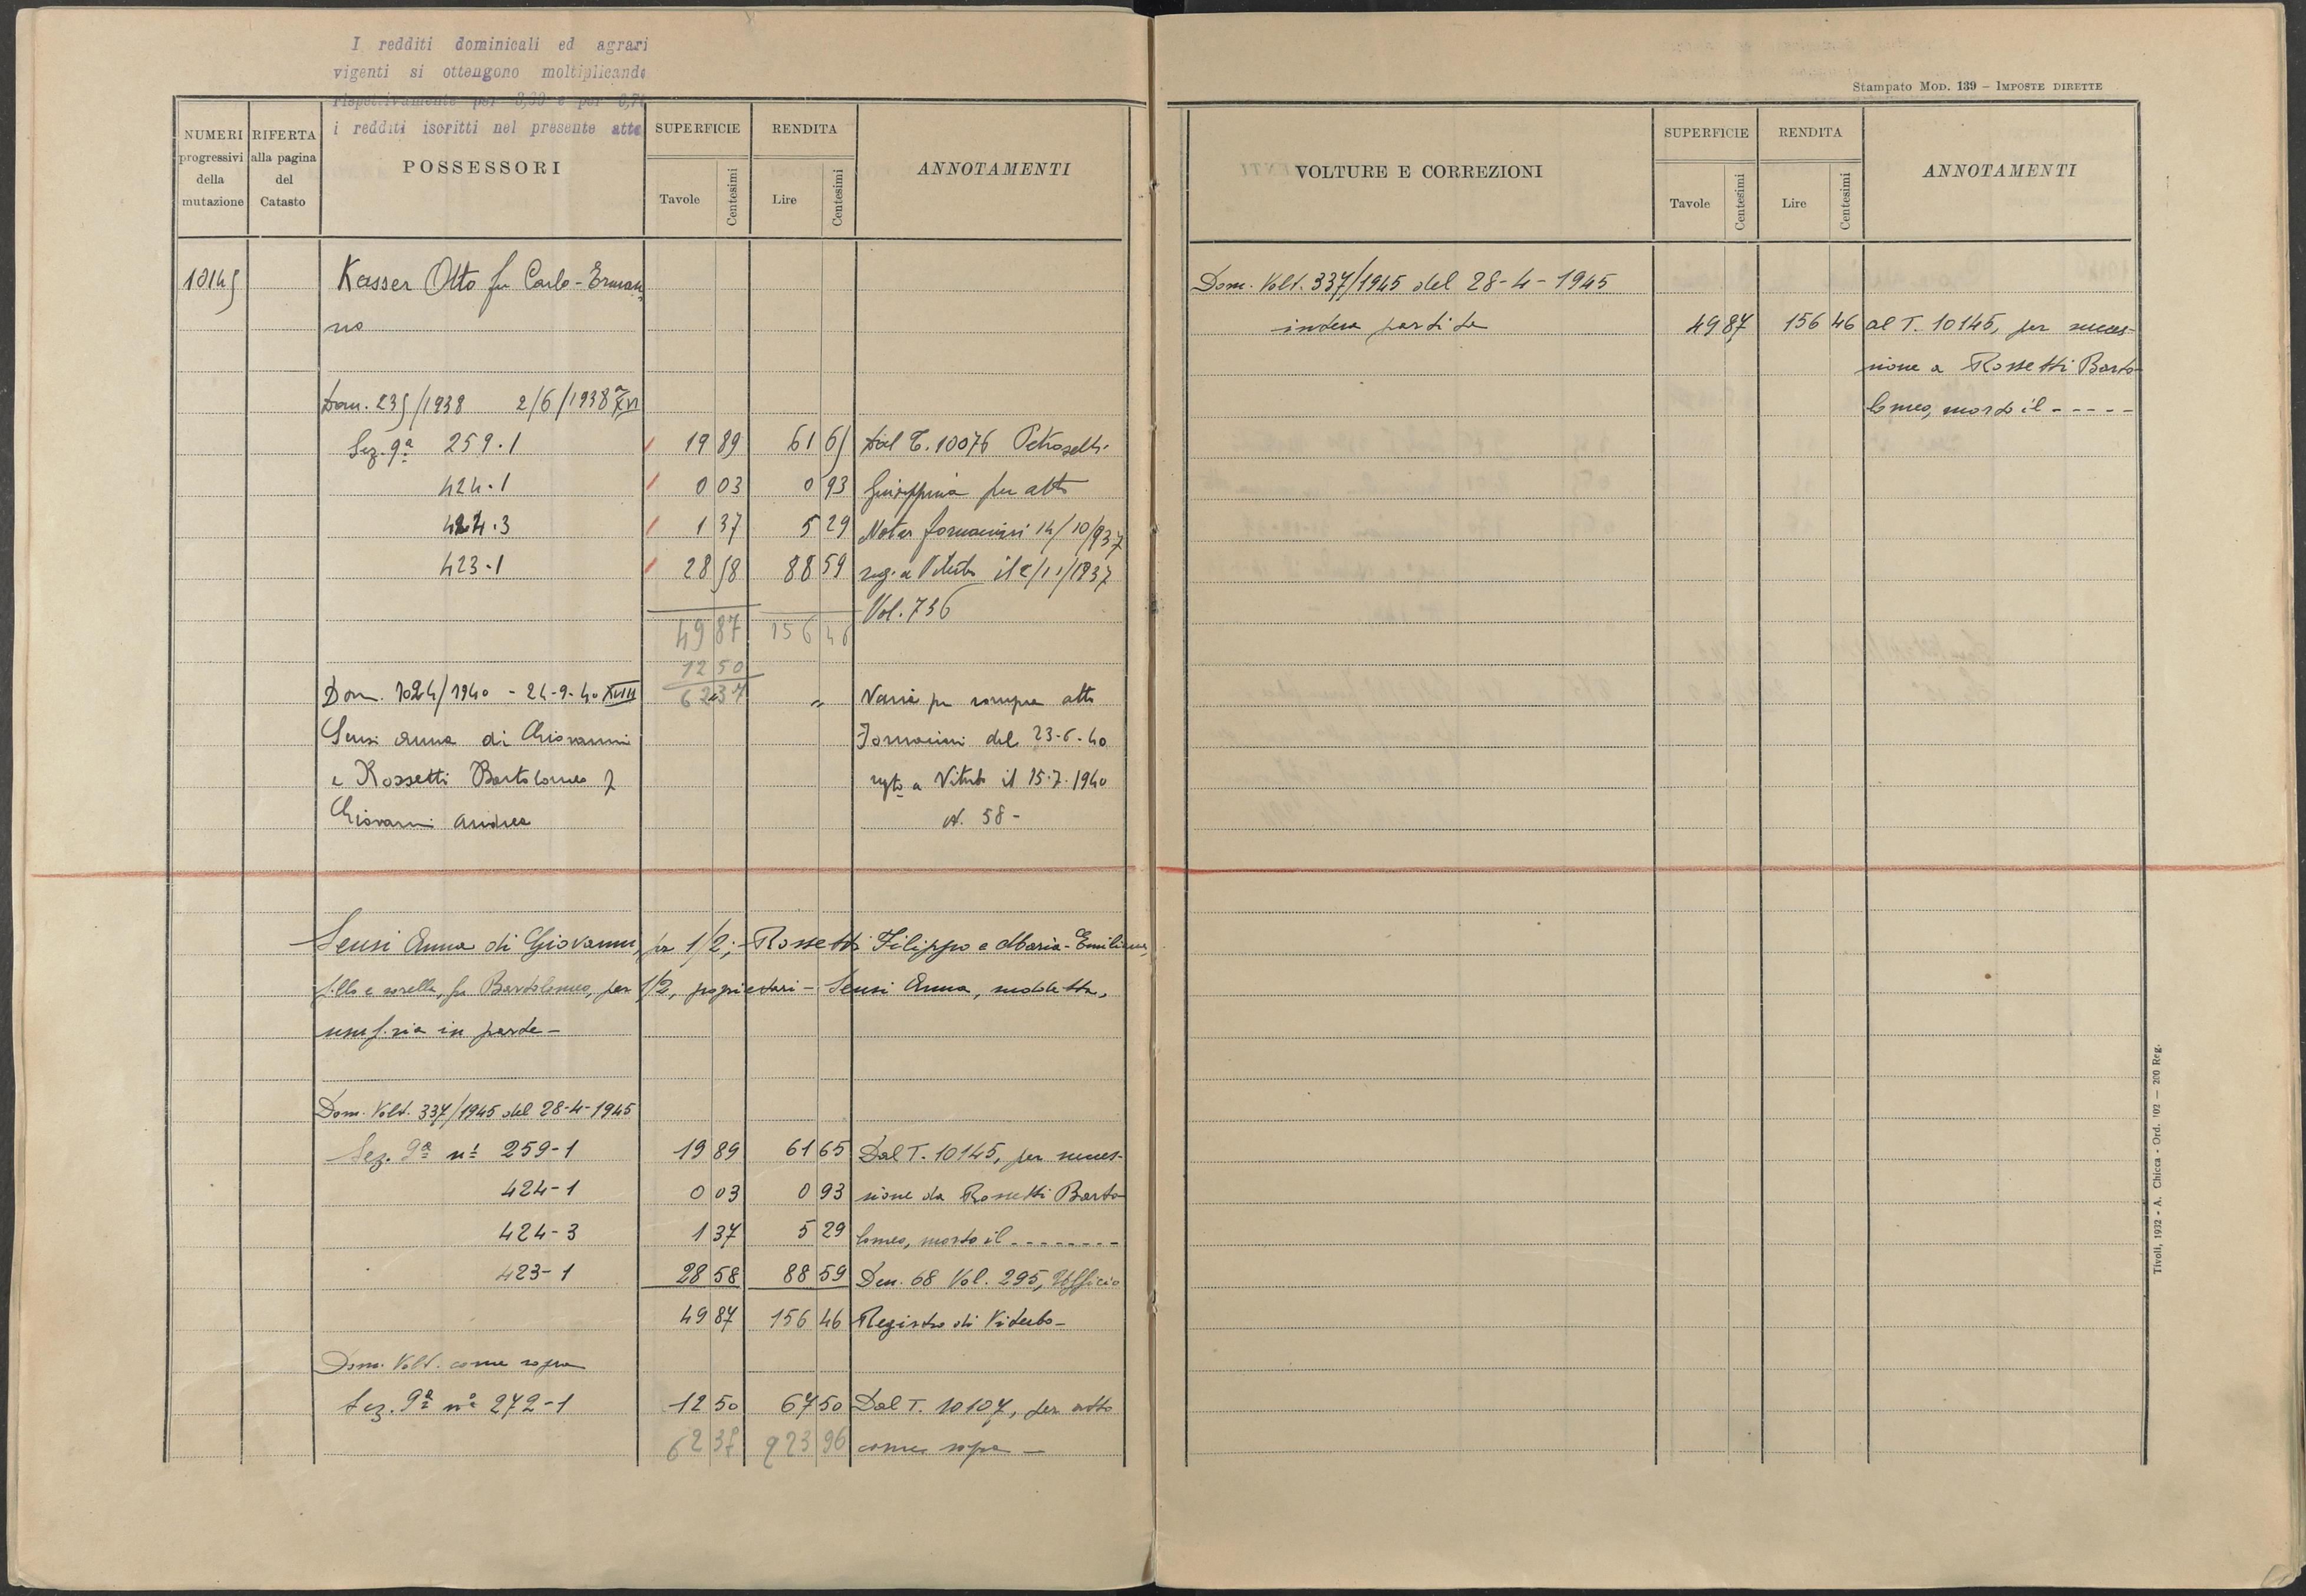 I redditi dominicali ed agrari
vigenti si ottengono moltiplicando
rispettivamente per e per
i redditi iscritti nel presente atto
Stampato Mod. 139 – Imposte dirette
NUMERI progressivi della mutazione
RIFERTA alla pagina del Catasto
POSSESSORI
SUPERFICIE
Tavole Centesimi
RENDITA
Lire Centesimi
ANNOTAMENTI
10145 Kasser Otto fu Carlo-Erman
no
Dom. 235/1938 2/6/1938 XVI
Sez. 9ª 259.1 19 89 61 65 Dal T. 10076
424.1 0 03 0 93 Giuseppina per atto
424.3 1 37 5 29 Notar Fornacini 14/10/937
423.1 28 58 88 59 reg. a Viterbo il 2/11/1937
Vol. 736
49 87 156 46
12 50
62 37
Dom. 1024/1940 - 24-9-40 XVIII " Varia per compra atto
Sensi Anna di Giovanni Fornacini del 23-6-40
e Rossetti Bartolomeo f Viterbo il 15.7.1940
Giovanni Andrea N. 58 -
Sensi Anna di Giovanni, per 1/2; - Rossetti Filippo e Maria-Emiliana,
f.llo e sorella, fu Bartolomeo, per 1/2, proprietari - Sensi Anna,
usuf.ria in parte -
Dom. Volt. 337/1945 del 28-4-1945
Sez. 9ª nº 259-1 19 89 61 65 Dal T. 10145, per succes-
424-1 0 03 0 93 sione da Rossetti Barto
424-3 1 37 5 29 lomeo, morto il --------
423-1 28 58 88 59 Den. 68 Vol. 295, Ufficio
49 87 156 46 Registro di Viterbo -
Dom. Volt. come sopra
Sez. 9ª nº 272-1 12 50 67 50 Dal T. 10107, per atto
62 37 223 96 come sopra -
VOLTURE E CORREZIONI
SUPERFICIE
Tavole Centesimi
RENDITA
Lire Centesimi
ANNOTAMENTI
Dom. Volt. 337/1945 del 28-4-1945
intera partita 49 87 156 46 al T. 10145, per succes-
sione a Rossetti Barto
lomeo, morto il -----
Tivoli, 1932 - A. Chicca - Ord. 102 — 200 Reg.